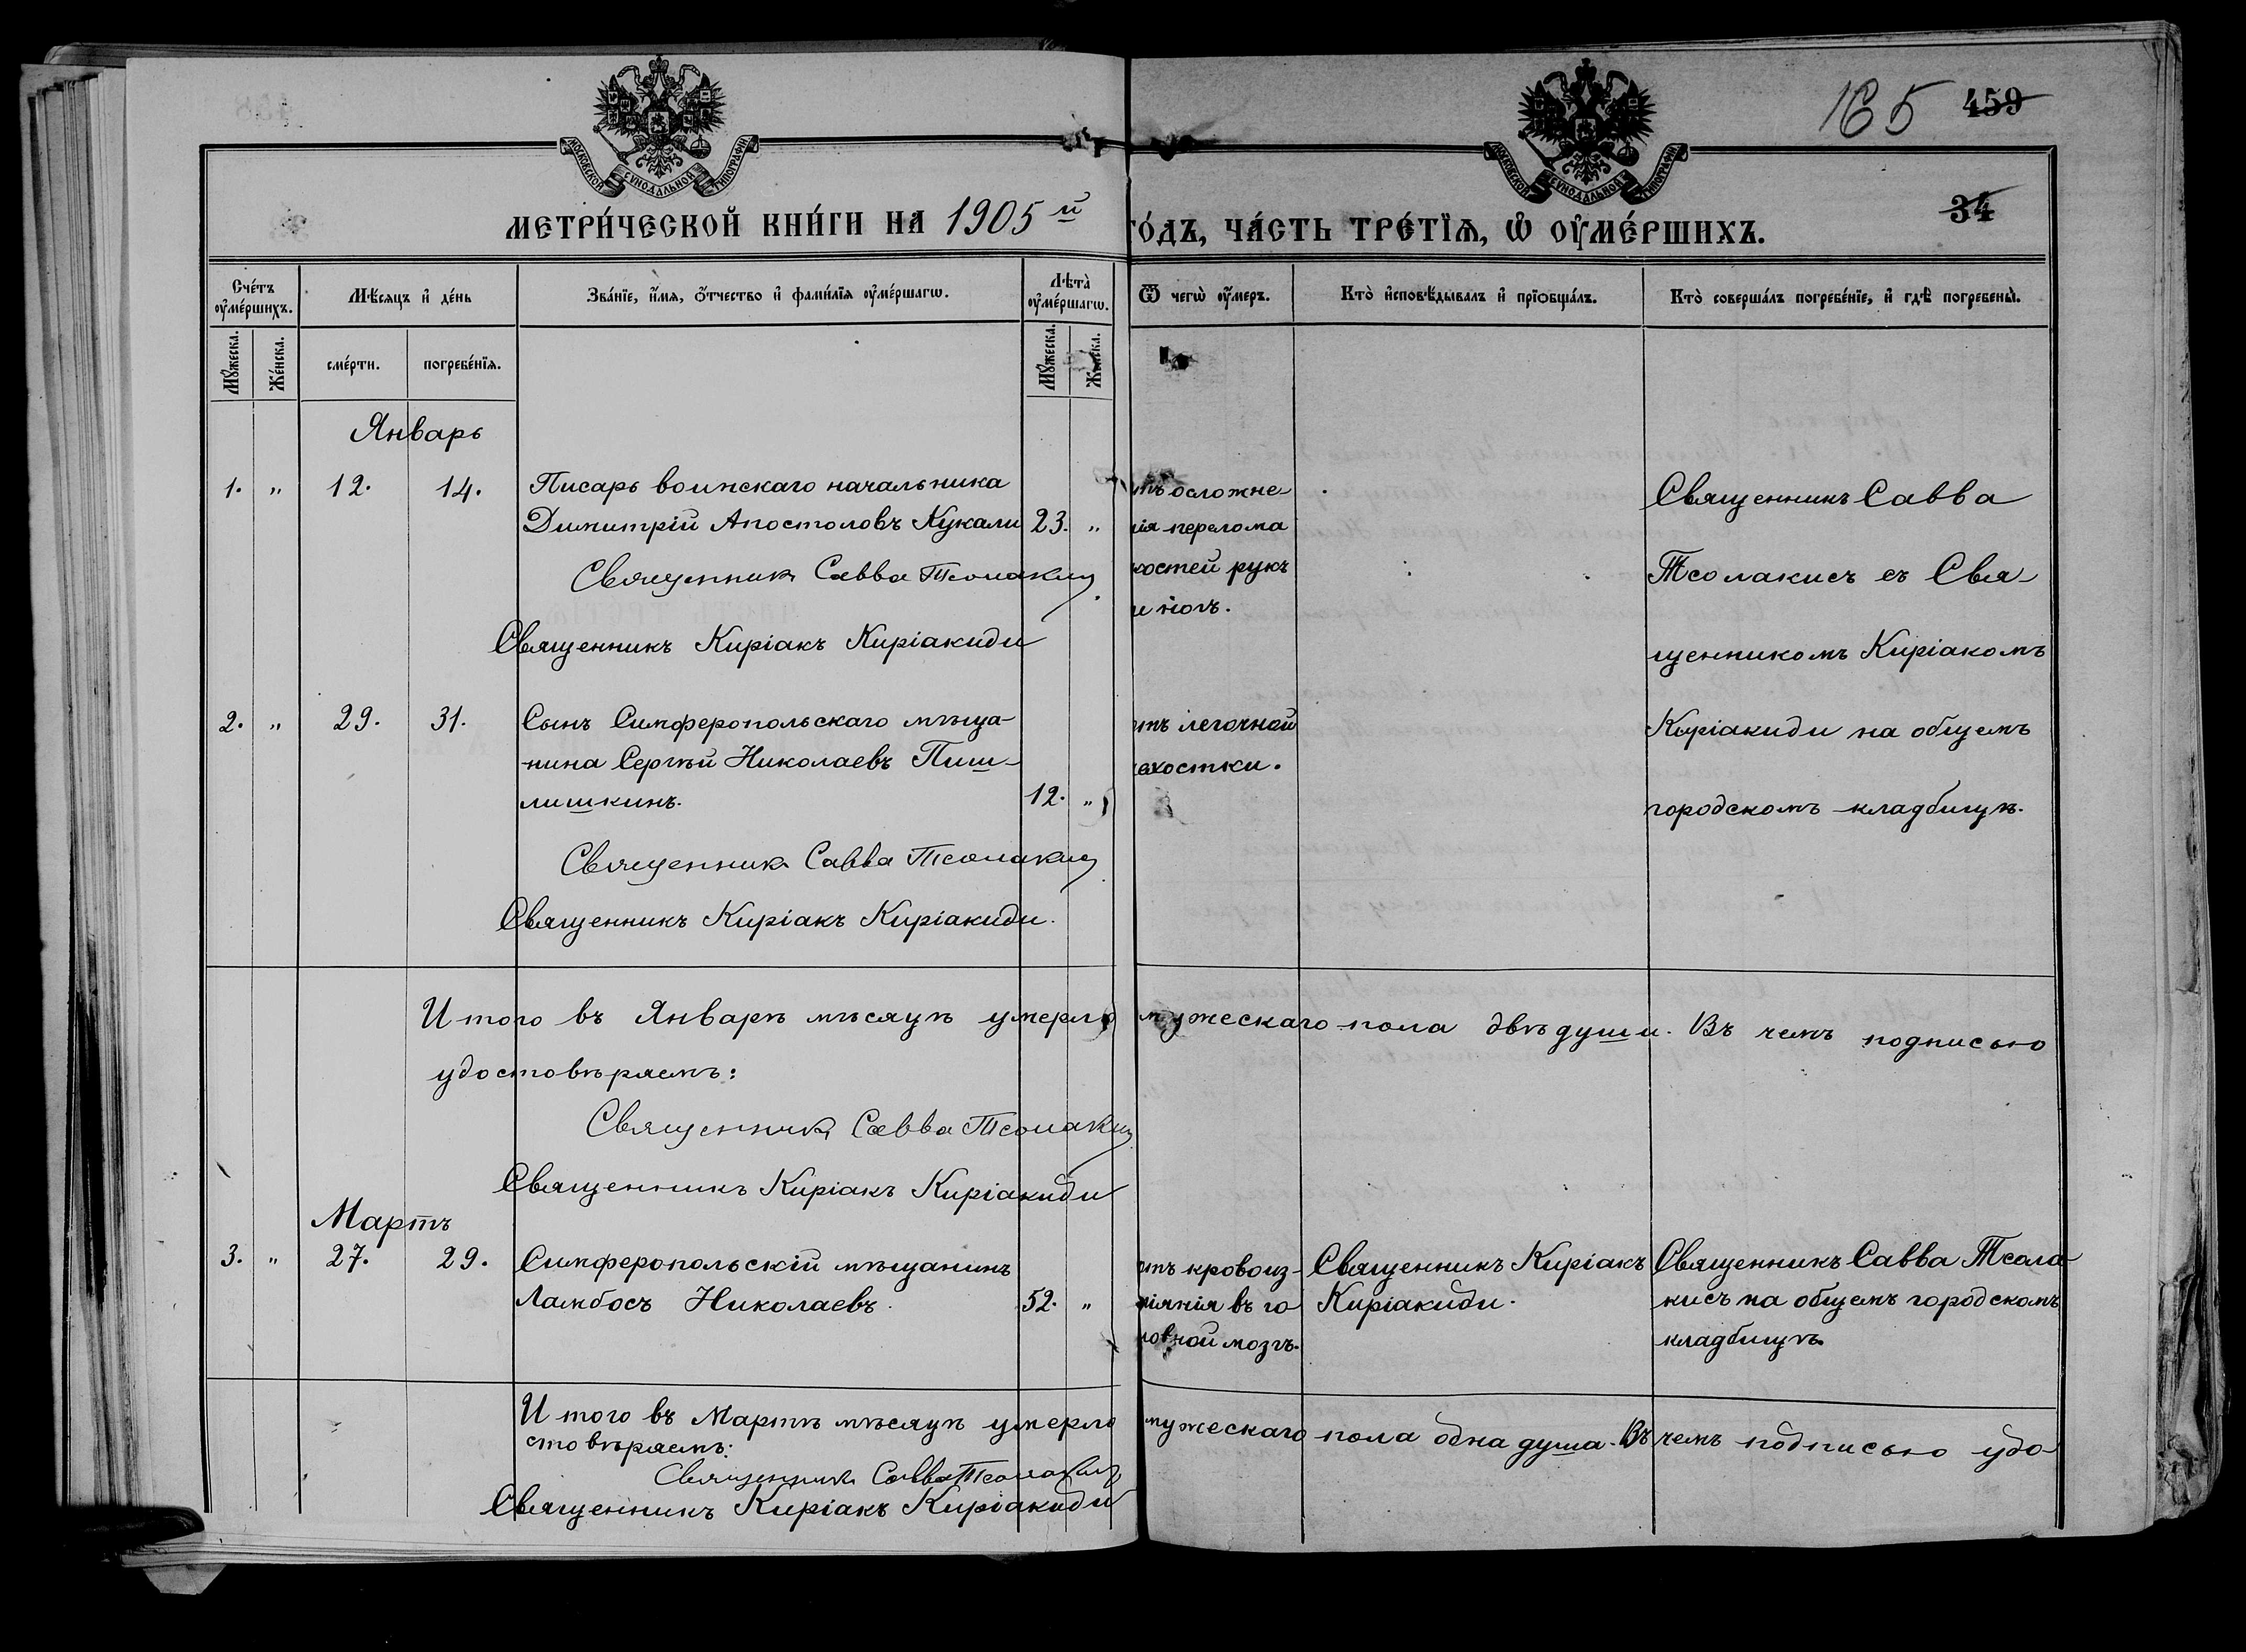 165 459
МОСКОВСКОЙ СѴНОДАЛЬНОЙ ТИПОГРАФІИ
МОСКОВСКОЙ СѴНОДАЛЬНОЙ ТИПОГРАФІИ
34
МЕТРИ́ЧЕСКОЙ КНИ́ГИ НА 1905 й
ГО́ДЪ, ЧА́СТЬ ТРЕ́ТЇѦ, Ѡ҆ ОУ҆МЕ́РШИХЪ.
Сче́тъ оу҆ме́ршихъ.
Мѣ́сяцъ и҆ де́нь
Зва́нїе, и҆́мя, ѻ҆́тчество и҆ фами́лїя оу҆ме́ршагѡ.
Лѣ́та̀ оу҆ме́ршагѡ.
Ѿ чегѡ̀ оу҆́меръ.
Кто̀ и҆сповѣ́дывалъ и҆ прїѡбща́лъ.
Кто̀ соверша́лъ погребе́нїе, и҆ гдѣ̀ погребены̀.
Мꙋ́жеска.
Же́нска.
сме́рти.
погребе́нїя.
Мꙋ́жеска.
Же́нска.
Январь
1. „ 12. 14. Писарь воинскаго начальника
Димитрій Апостоловъ Кукали 23. „
Священникъ Савва Тсолакисъ
Священникъ Киріакъ Киріакиди
тъ осложне-
нія перелома
костей рукъ
и ногъ.
Священникъ Савва
Тсолакисъ съ Свя-
щенникомъ Киріакомъ
Киріакиди на общемъ
городскомъ кладбищѣ.
2. „ 29. 31. Сынъ Симферопольскаго мѣща-
нина Сергѣй Николаевъ Пиш-
лишкинъ. 12. „
Священникъ Савва Тсолакисъ
Священникъ Киріакъ Киріакиди.
тъ легочной
чахотки.
Итого въ Январѣ мѣсяцѣ умерло мужескаго пола двѣ души. Въ чемъ подписью
удостовѣряемъ:
Священникъ Савва Тсолакисъ
Священникъ Киріакъ Киріакиди
Мартъ
3. „ 27. 29. Симферопольскій мѣщанинъ
Ламбосъ Николаевъ. 52. „
тъ кровоиз-
ліянія въ го
ловной мозгъ.
Священникъ Киріакъ
Киріакиди.
Священникъ Савва Тсола
кисъ на общемъ городскомъ
кладбищѣ.
Итого въ Мартѣ мѣсяцѣ умерло мужескаго пола одна душа. Въ чемъ подписью удо-
стовѣряемъ:
Священникъ Савва Тсолакисъ
Священникъ Киріакъ Киріакиди